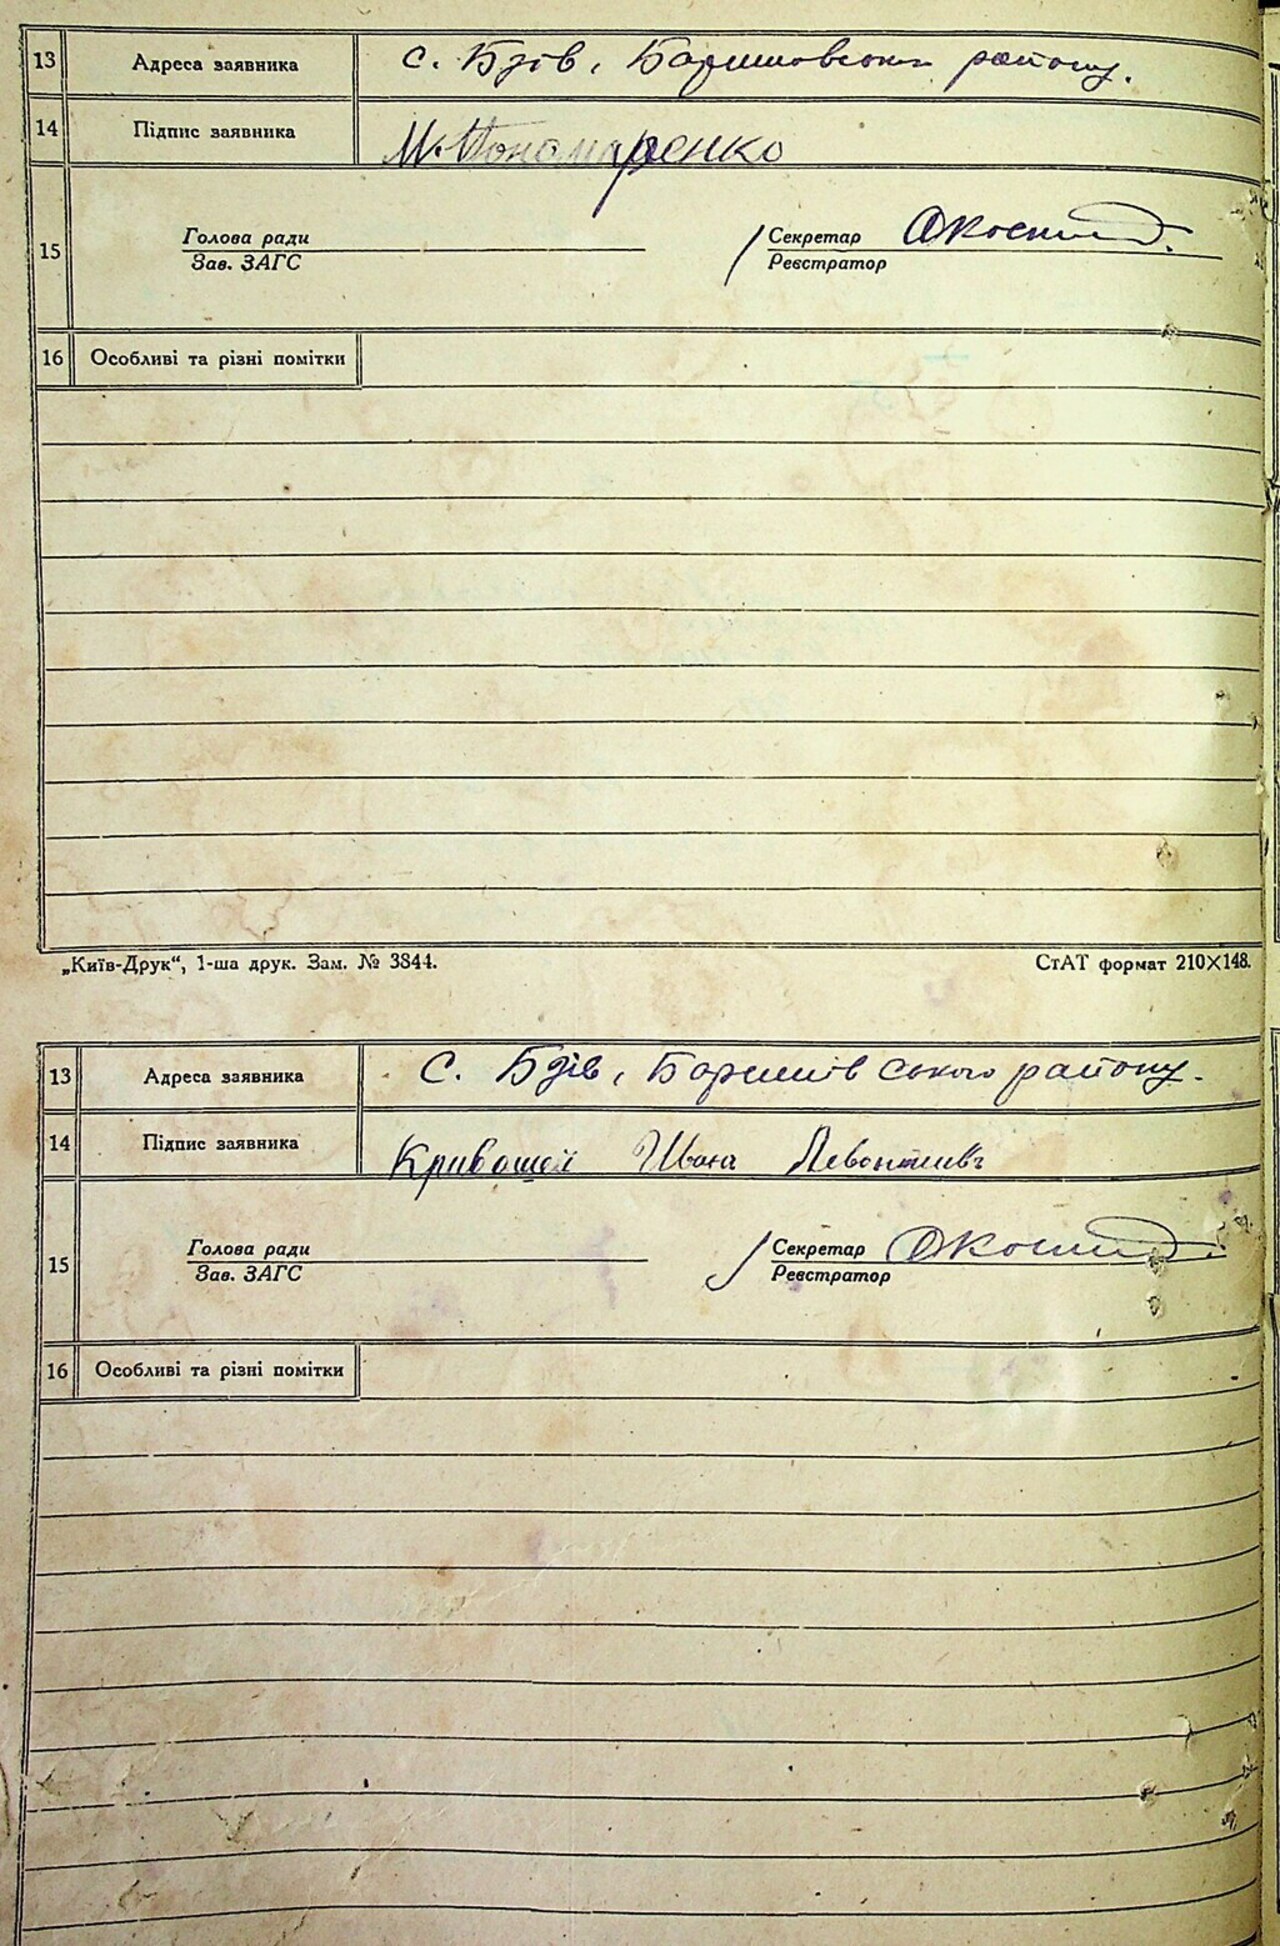 13 Адреса заявника с. Бзів, Баришовського району.
14 Підпис заявника М. Пономаренко
Голова ради Секретар
15
Зав. ЗАГС Реєстратор
16 Особливі та різні помітки
„Київ-Друк“, 1-ша друк. Зам. № 3844. СтАТ формат 210X148.
13 Адреса заявника с. Бзів, Баришівського району.
14 Підпис заявника Кривошей Ивана Левонтиевъ
Голова ради Секретар
15
Зав. ЗАГС Реєстратор
16 Особливі та різні помітки